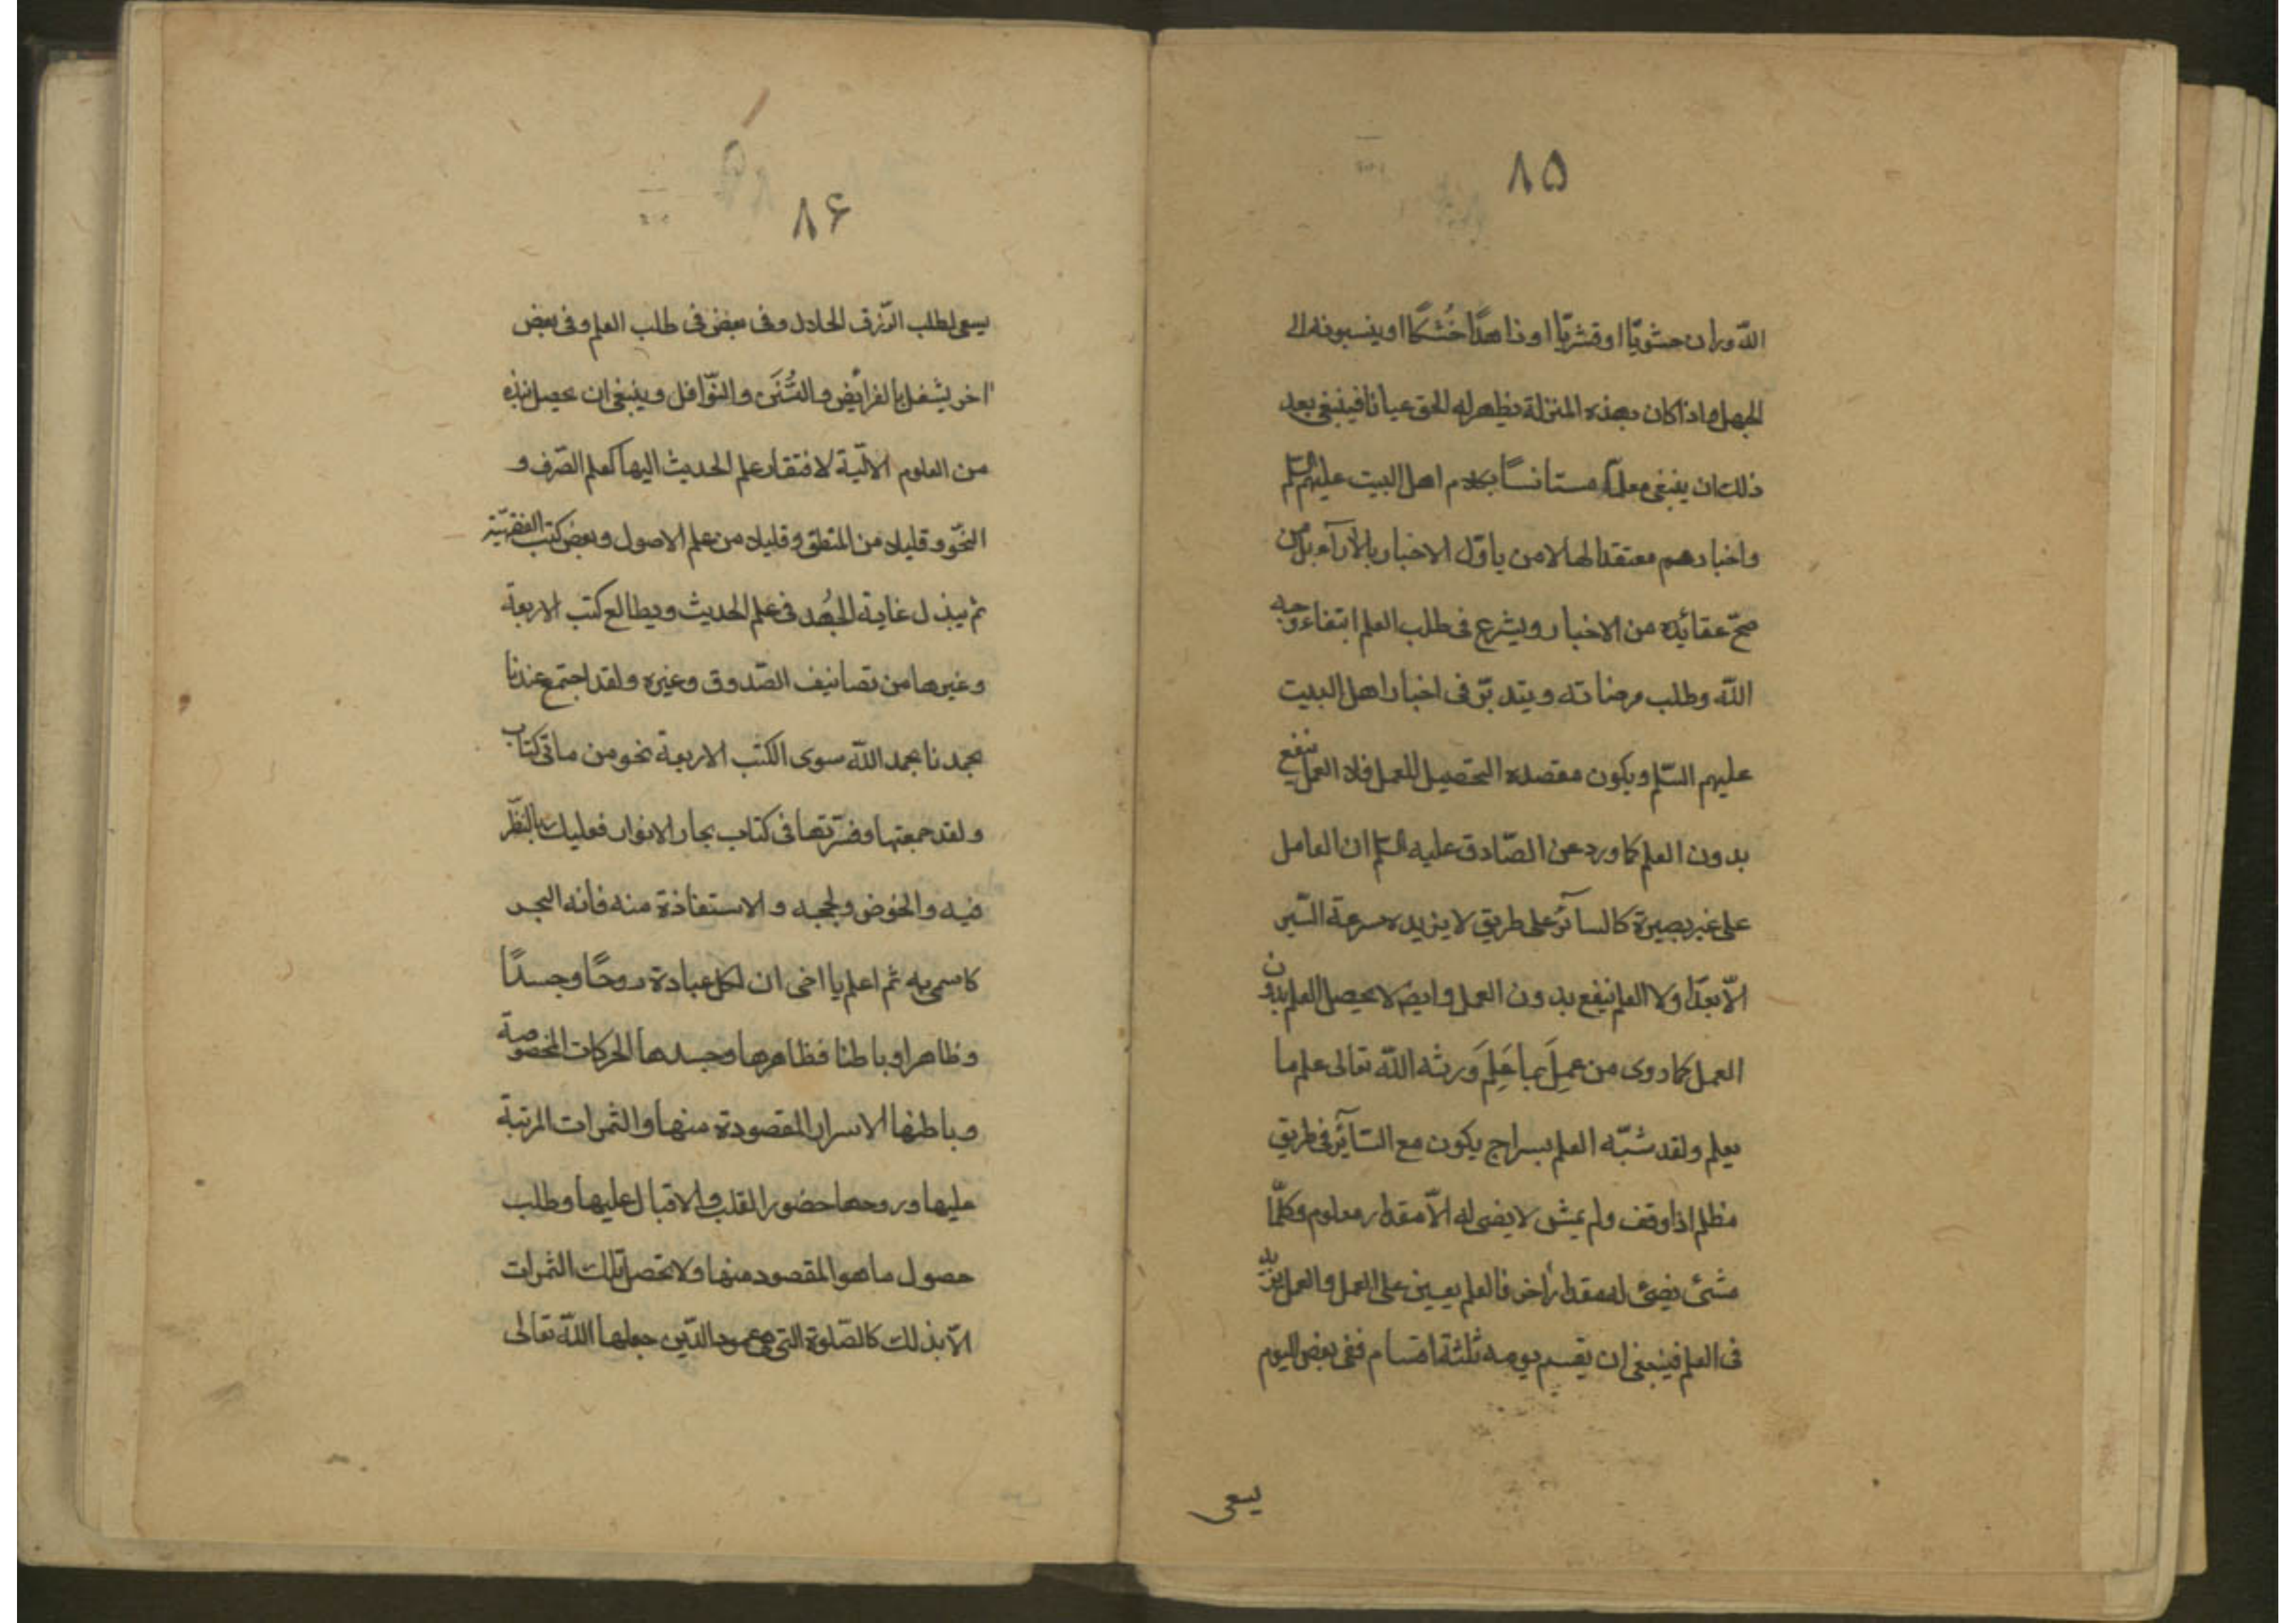 ٨۵
اللّه وان حشويّا او قشريّا او زاهدًا خُشكًا او ينسبونه الى
الجهل واذا كان بهذه المنزلة يظهر له الحق عيانا فينبغى بعد
ذلك ان يبتغى معلّما مستانسًا بكلام اهل البيت عليهم السلم
واخبارهم معتقدا لها لا من ياوّل الاخبار بالآرآء بل من
صحّ عقائده من الاخبار ويشرع فى طلب العلم ابتغاء وجه
اللّه وطلب مرضاته ويتدبّر فى اخبار اهل البيت
عليهم السّلم ويكون مقصده التحصيل للعمل فلا العمل ينفع
بدون العلم كما ورد عن الصّادق عليه السلم ان العامل
على غير بصيرة كالسائر على طريق لا يزيده سرعة السّير
الّا بعدًا ولا العلم ينفع بدون العمل وايض لا يحصل العلم بدون
العمل كما روى من عمِلَ بما عَلِمَ وَرثه اللّه تعالى علم ما
يعلم ولقد شبّه العلم بسراج يكون مع السّآئر فى طريق
مظلم اذا وقف ولم يمش لا يضى له الّا مقدار معلوم وكلّما
مشئ يضئ له مقدار آخر فالعلم يعين على العمل والعمل يزيد
فى العلم فينبغى ان يقسم يومه ثلثة اقسام ففى بعض اليوم
يسعى
٨۶
يسعى لطلب الرّزق الحلال وفى بعض فى طلب العلم وفى بعض
اخر يشغل بالفرائض والسُّنَن والنّوافل وينبغى ان يحصل نبذه
من العلوم الآليّة لافتقار علم الحديث اليها كعلم الصّرف و
النحّو وقليلا من المنطق وقليلا من علم الاصول وبعض كتب الفقهيّة
ثم يبذل غاية الجُهد فى علم الحديث ويطالع كتب الاربعة
وغيرها من تصانيف الصّدوق وغيره ولقد اجتمع عندنا
بحمدنا بحمد اللّه سوى الكتب الاربعة نحو من ماتى كتاب
ولقد جمعتها وفسّرتها فى كتاب بحار الانوار فعليك بالنظّر
فيه والخوض ولججه والاستفاذة منه فانه البحر
كاسمى به ثم اعلم يا اخى ان لكل عبادة روحًا وجسدًا
وظاهرا وباطنا فظاهرها وجسدها الحركات المخصوصة
وباطنها الاسرار المقصودة منها والثمرات المرتبة
عليها وروحها حضور القلب والاقبال عليها وطلب
حصول ما هو المقصود منها ولا تحصل تلك الثمرات
الّا بذلك كالصّلوة التى هى عمود الدّين جعلها اللّه تعالى